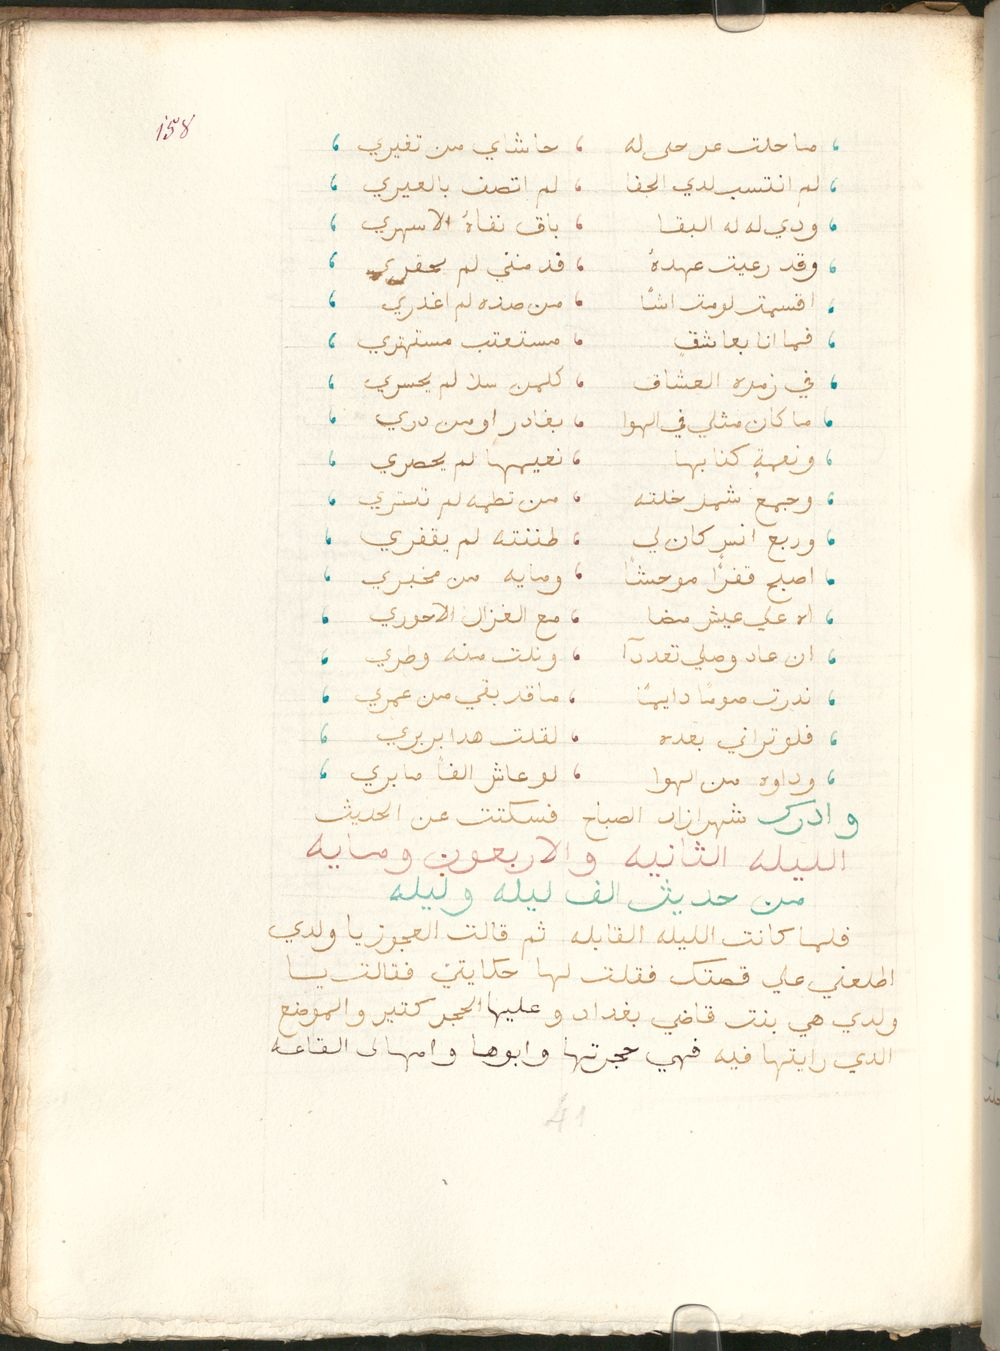 158
ما حلت عن حي له ، حاشاي من تغيري
لم انتسب لدي الجفا ، لم اتصف بالغيري
ودي له له البقا ، باق نفاهُ الاسهري
وقد رعيت عهدهُ ، فذمتي لم تحقري
اقسمت لو مت اسًا ، من صده لم اعذري
فما انا بعاشقٍ ، مستعتب مستهتري
في زمره العشاق ، كلمن سلا لم يحسري
ما كان مثلي في الهوا ، بغادر او من دري
ونعمةٍ كنا بها ، نعيمها لم يحصري
وجمع شمل خلته ، من نظمه لم تنتري
وربع انس كان لي ، ظننته لم يقفري
اصبح قفرًا موحشًا ، وما به من مخبري
اه علي عيش مضا ، مع الغزال الاحوري
ان عاد وصلي تعددآ ، ونلت منه وطري
ندرت صومًا دايمًا ، ما قد بقي من عمري
فلو تراني بعده ، لقلت هدا بربري
وداوه من الهوا ، لو عاش الفاً ما بري
وادرك شهرازاد الصباح فسكتت عن الحديث
الليله الثانيه والاربعون ومايه
من حديث الف ليله وليله
فلما كانت الليله القابله ثم قالت العجوز يا ولدي
اطلعني علي قصتك فقلت لها حكايتي فقالت يا
ولدي هي بنت قاضي بغداد وعليها الحجر كتير والموضع
الدي رايتها فيه فهي حجرتها وابوها وامها في القاعه
41